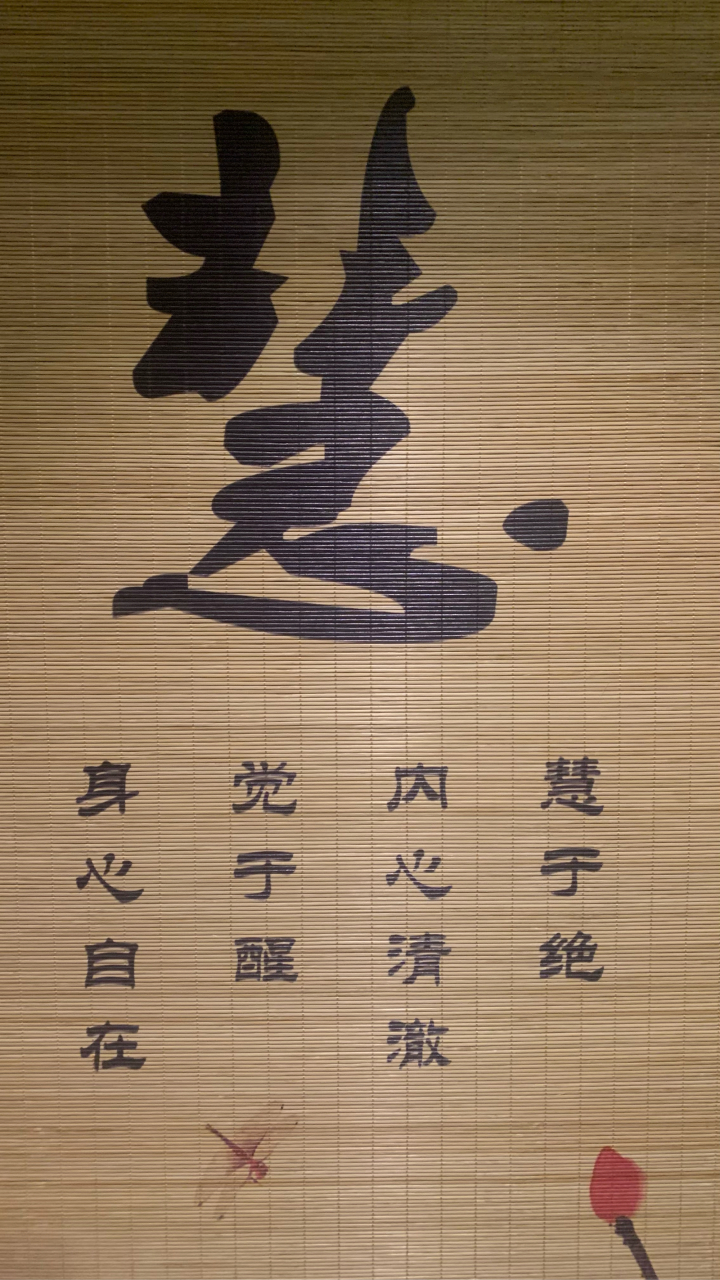 慧
慧于绝
内心清澈
觉于醒
身心自在